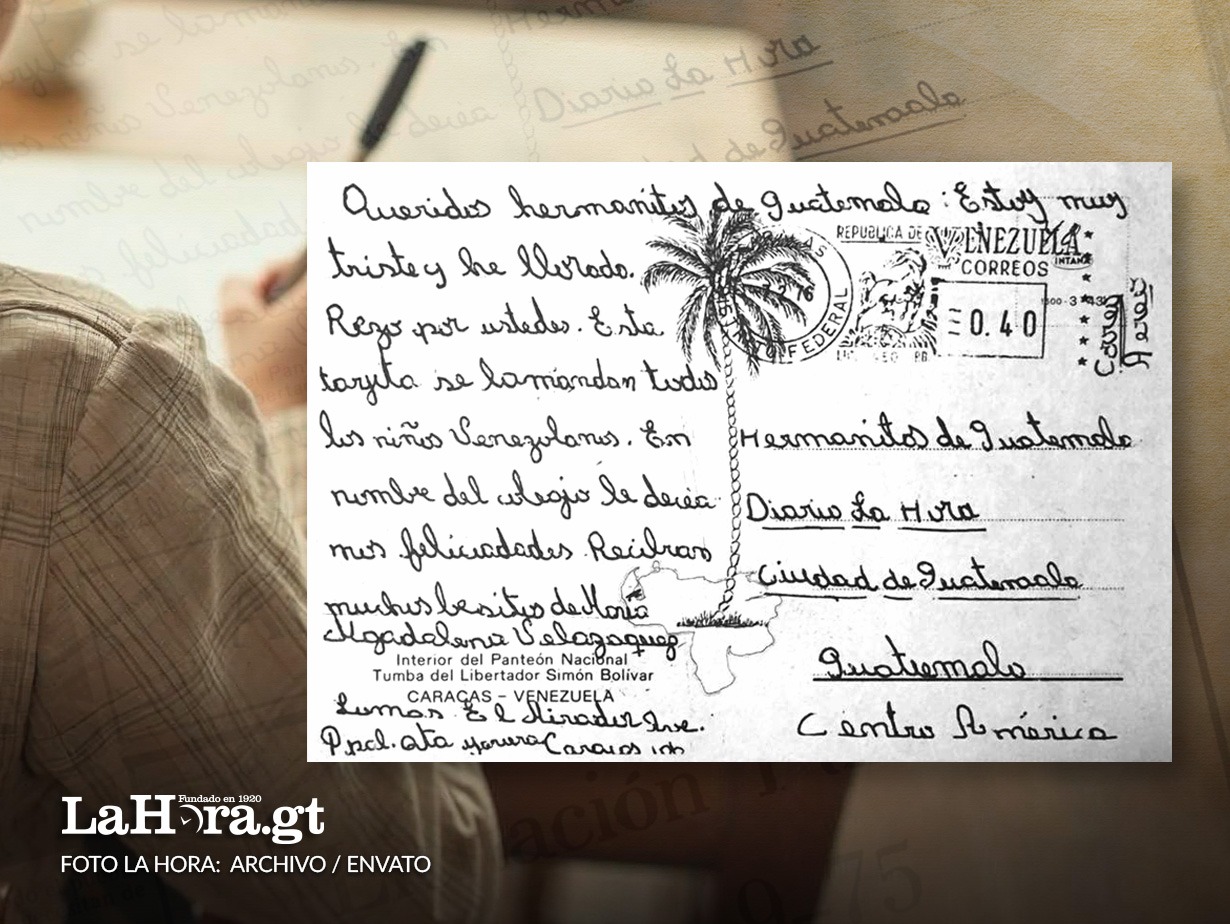 Queridos hermanitos de Guatemala: Estoy muy
triste y he llorado.
Rezo por ustedes. Esta
tarjita se la mandan todos
los niños Venezolanos. En
nombre del colegio le decea
mos feliciadades. Reciban
muchos besitos de María
Mgadalena Velazaquez
Interior del Panteón Nacional
Tumba del Libertador Simón Bolívar
CARACAS – VENEZUELA
Lomas El Mirador
Caracas
REPUBLICA DE VENEZUELA
CORREOS
0.40
FEDERAL
Correo
Aereo
Hermanitos de Guatemala
Diario La Hora
Ciudad de Guatemaala
Guatemala
Centro América
Diario La Hora
de Guatemaala
LaHora.gt
Fundado en 1920
FOTO LA HORA: ARCHIVO / ENVATO